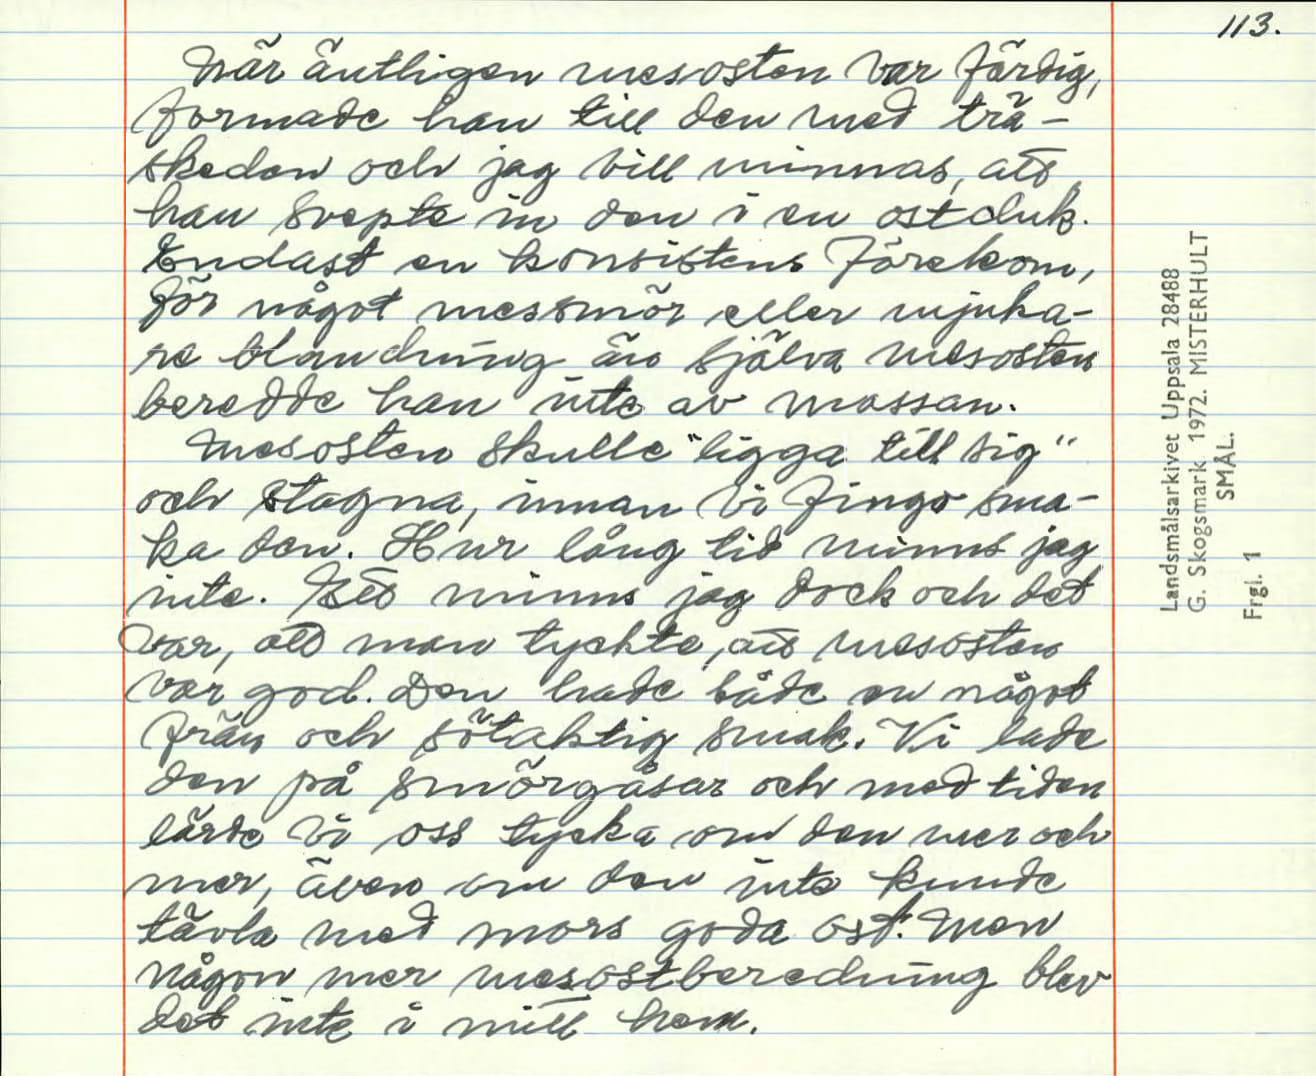 113.
När äntligen mesosten var färdig,
formade han till den med trä-
skeden och jag vill minnas, att
han svepte in den i en ostduk.
Endast en konsistens förekom,
för något messmör eller mjuka-
re blandning än själva mesosten
beredde han inte av massan.
Mesosten skulle "ligga till sig"
och stagna, innan vi fingo sma-
ka den. Hur lång tid minns jag
inte. Det minns jag dock och det
var, att man tyckte, att mesosten
var god. Den hade både en något
frän och sötaktig smak. Vi lade
den på smörgåsar och med tiden
lärde vi oss tycka om den mer och
mer, även om den inte kunde
tävla med mors goda ost. Men
någon mer mesostberedning blev
det inte i mitt hem.
Landsmålsarkivet Uppsala 28488
G. Skogsmark 1972. MISTERHULT
SMÅL.
Frgl. 1